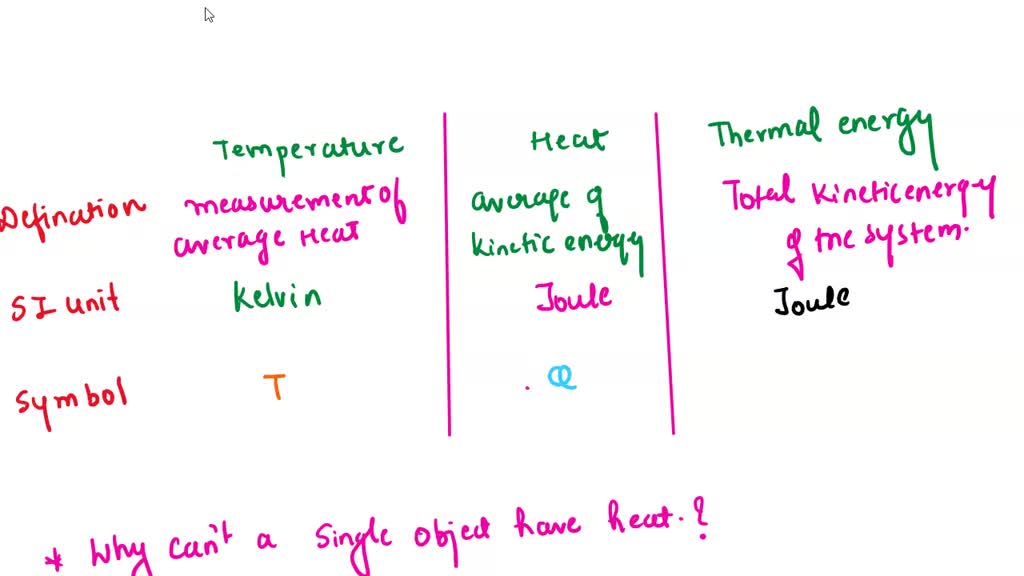 Temperature Heat Thermal energy
Defination measurement of average of Total kinetic energy
average Heat kinetic energy of the system.
SI unit Kelvin Joule Joule
Symbol T Q
* Why can't a single object have heat.?